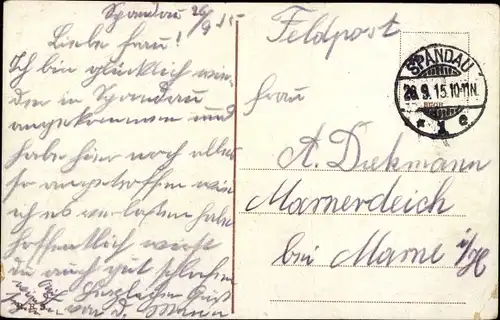 Spandau 26/9 15
Liebe Frau!
Ich bin glücklich wie-
der in Spandau
angekommen und
habe hier noch alles
so angetroffen wie
ich es verlassen habe
hoffentlich wirst
du auch gut schlafen
Herzlichen Gruß
von d. Mann
Feldpost
SPANDAU
26.9.15.10-11N.
* 1 e
Frau
A. Diekmann
Marnerdeich
bei Marne i/H